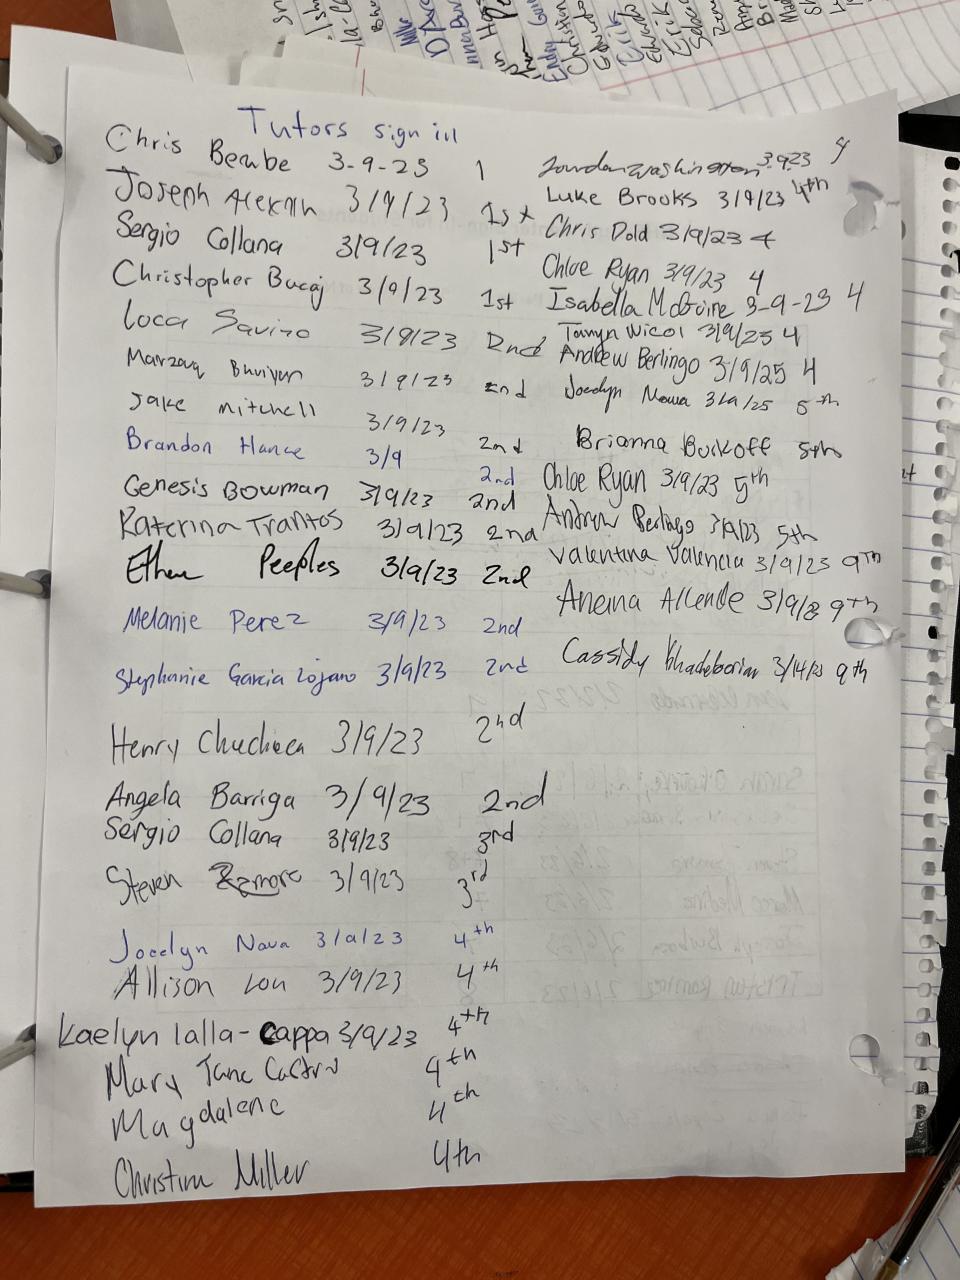 Tutors sign in
Chris Bembe 3-9-23 1
Joseph 3/9/23 1st
Sergio Collana 3/9/23 1st
Christopher Bucaj 3/9/23 1st
Luca Savino 3/9/23 2nd
Marzouq Bhuiyan 3/9/23 2nd
Jake Mitchell 3/9/23 2nd
Brandon Hance 3/9 2nd
Genesis Bowman 3/9/23 2nd
Katerina Trantos 3/9/23 2nd
Ethan Peeples 3/9/23 2nd
Melanie Perez 3/9/23 2nd
Stephanie Garcia Lojano 3/9/23 2nd
Henry Chuchuca 3/9/23 2nd
Angela Barriga 3/9/23 2nd
Sergio Collana 3/9/23 3rd
Steven Zamora 3/9/23 3rd
Jocelyn Nava 3/9/23 4th
Allison Lou 3/9/23 4th
Kaelyn Lalla-Cappa 3/9/23 4th
Mary Jane Castro 4th
Magdalene 4th
Christina Miller 4th
Jourdan Washington 3.9.23 4
Luke Brooks 3/9/23 4th
Chris Dold 3/9/23 4
Chloe Ryan 3/9/23 4
Isabella McGuire 3-9-23 4
Tamyn Nicol 3/9/23 4
Andrew Berlingo 3/9/25 4
Jocelyn Nava 3/9/25 5th
Brianna Burkoff 5th
Chloe Ryan 3/9/23 5th
Andrew Berlingo 3/9/23 5th
Valentina Valencia 3/9/23 9th
Allende 3/9/23 9th
Cassidy 3/14/23 9th